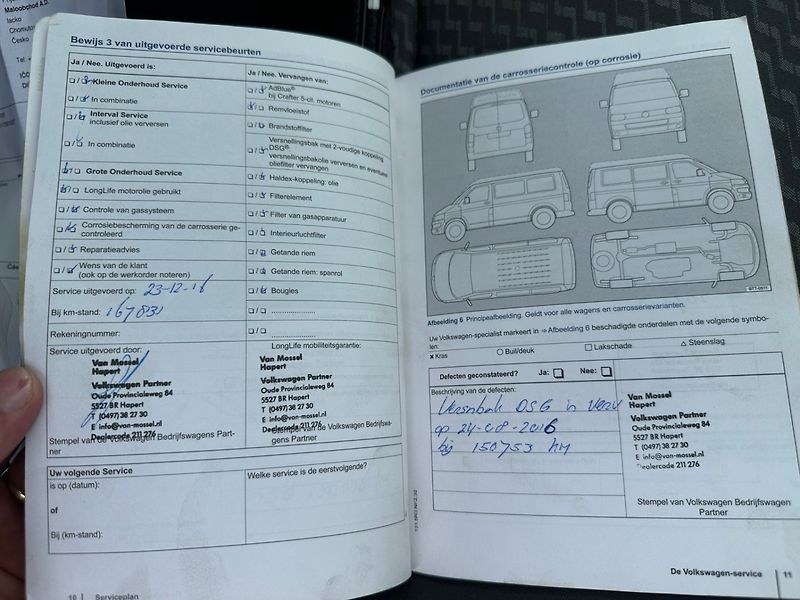 Maloobchod A.D.
Iacko
Chomutov
Česko
Tel. +
Bewijs 3 van uitgevoerde servicebeurten
Ja / Nee. Uitgevoerd is:
Kleine Onderhoud Service
In combinatie
Interval Service
inclusief olie verversen
In combinatie
Grote Onderhoud Service
LongLife motorolie gebruikt
Controle van gassysteem
Corrosiebescherming van de carrosserie ge-
controleerd
Reparatieadvies
Wens van de klant
(ook op de werkorder noteren)
Service uitgevoerd op: 23-12-16
Bij km-stand: 167830
Rekeningnummer:
Service uitgevoerd door:
Van Mossel
Hapert
Volkswagen Partner
Oude Provincialeweg 84
5527 BR Hapert
T (0497) 38 27 30
E info@van-mossel.nl
Dealercode 211 276
Stempel van de Volkswagen Bedrijfswagens Part-
ner
Uw volgende Service
is op (datum):
of
Bij (km-stand):
10 | Serviceplan
Ja / Nee. Vervangen van:
AdBlue®
bij Crafter 5-cil. motoren
Remvloeistof
Brandstoffilter
Versnellingsbak met 2-voudige koppeling
DSG®:
versnellingsbakolie verversen en eventueel
oliefilter vervangen
Haldex-koppeling: olie
Filterelement
Filter van gasapparatuur
Interieurluchtfilter
Getande riem
Getande riem: spanrol
Bougies
....................
....................
LongLife mobiliteitsgarantie:
Van Mossel
Hapert
Volkswagen Partner
Oude Provincialeweg 84
5527 BR Hapert
T (0497) 38 27 30
E info@van-mossel.nl
Dealercode 211 276
Stempel van de Volkswagen Bedrijfswa-
gens Partner
Welke service is de eerstvolgende?
Documentatie van de carrosseriecontrole (op corrosie)
B7T-0511
Afbeelding 6 Principeafbeelding. Geldt voor alle wagens en carrosserievarianten.
Uw Volkswagen-specialist markeert in ⇒ Afbeelding 6 beschadigde onderdelen met de volgende symbo-
len.
x Kras ○ Buil/deuk □ Lakschade △ Steenslag
Defecten geconstateerd? Ja: Nee:
Beschrijving van de defecten:
Versnbak DSG in verv
op 24-08-2016
bij 150753 km
Van Mossel
Hapert
Volkswagen Partner
Oude Provincialeweg 84
5527 BR Hapert
T (0497) 38 27 30
E info@van-mossel.nl
Dealercode 211 276
Stempel van Volkswagen Bedrijfswagen
Partner
De Volkswagen-service | 11